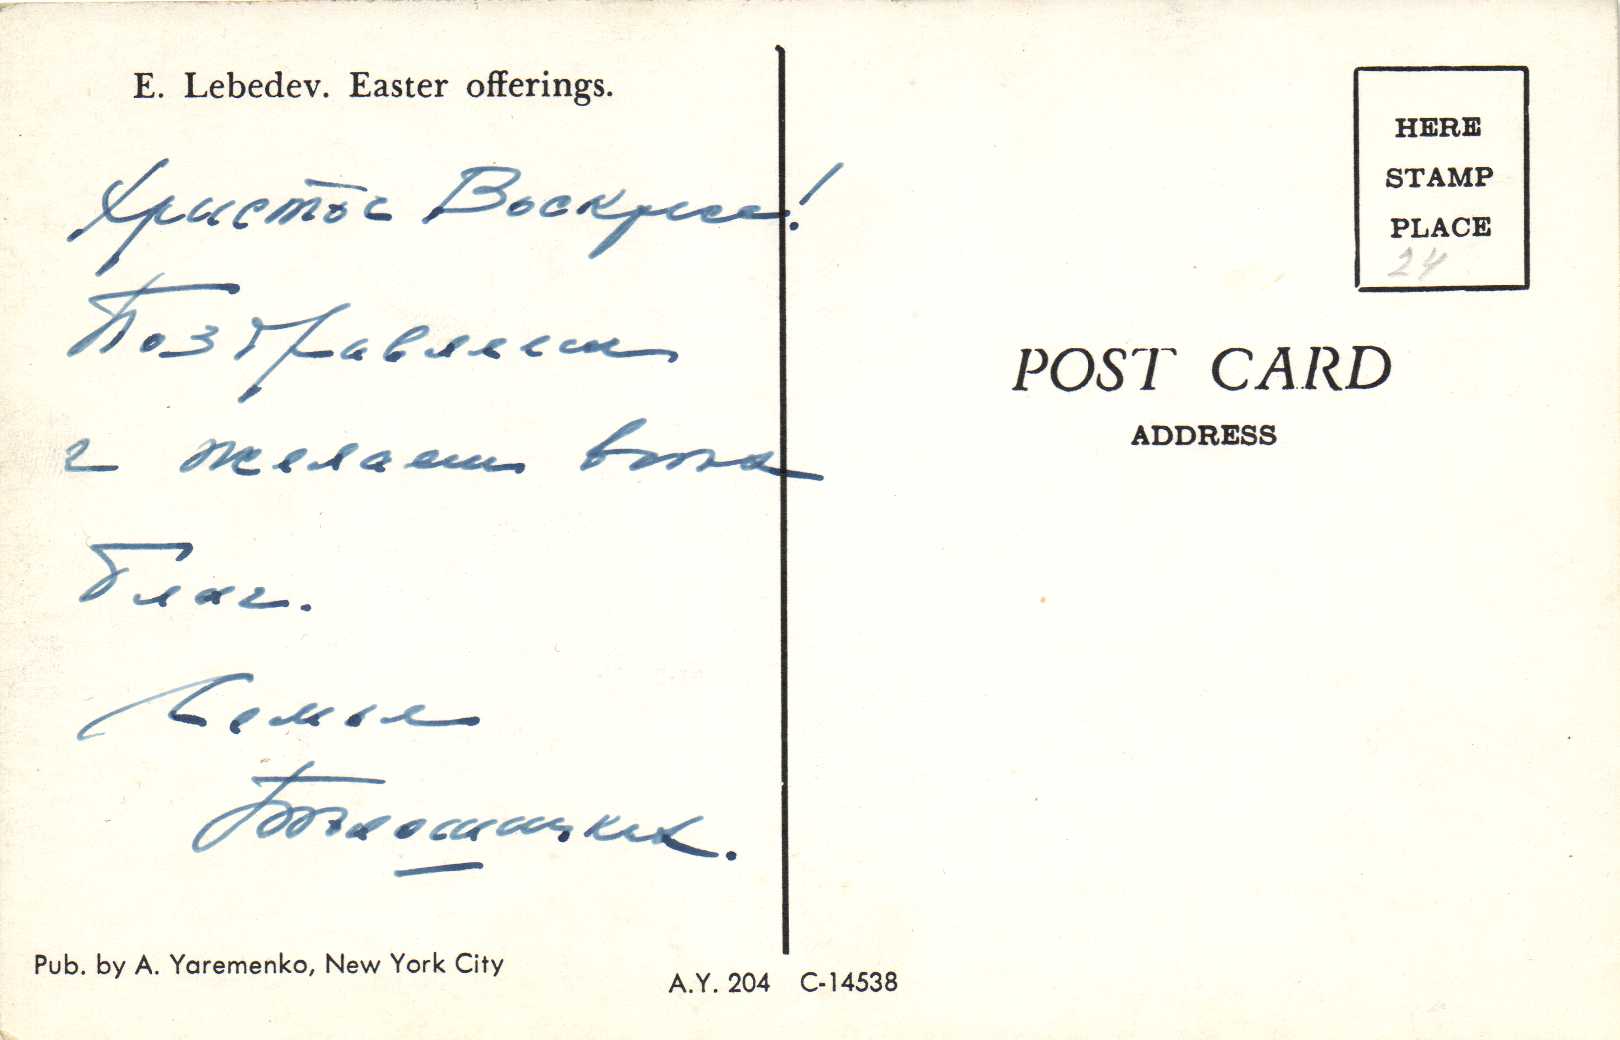 E. Lebedev. Easter offerings.
Христос Воскресе!
Поздравляем
и желаем всяких
благ.
Семья
HERE
STAMP
PLACE
24
POST CARD
ADDRESS
Pub. by A. Yaremenko, New York City
A.Y. 204 C-14538